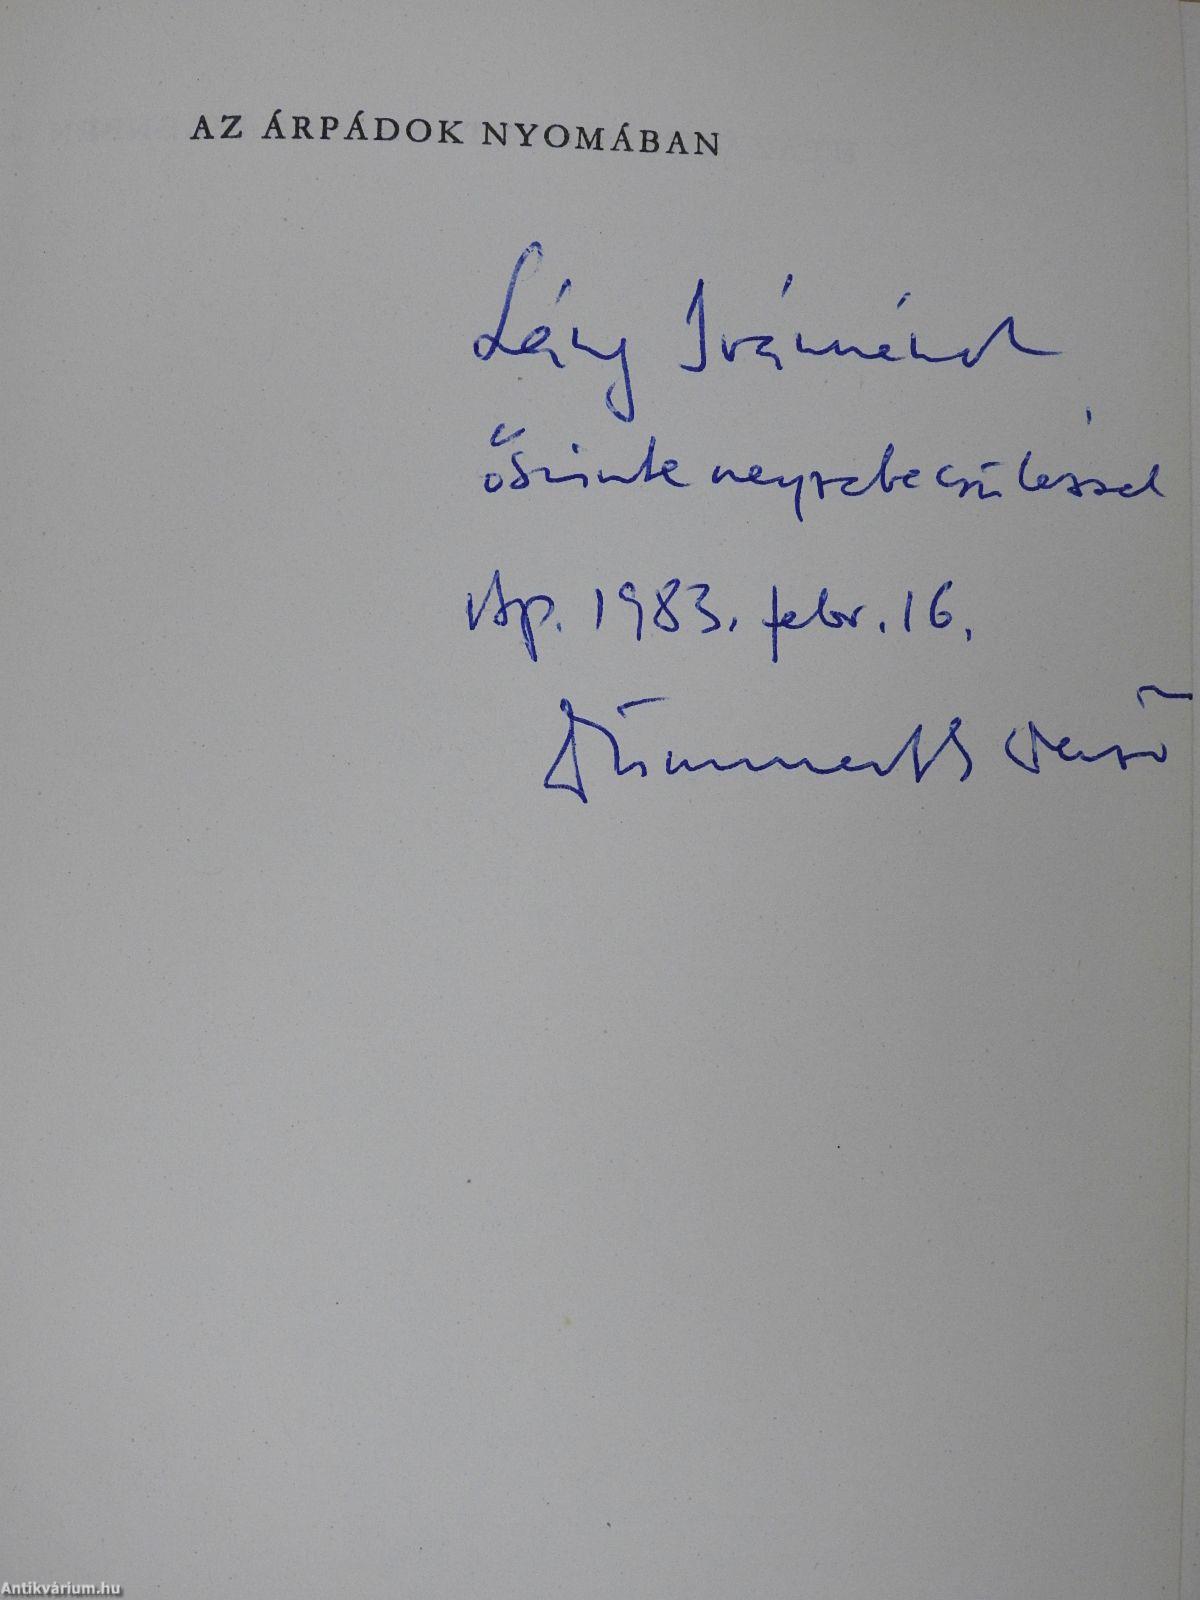 AZ ÁRPÁDOK NYOMÁBAN
Láng Ivánnénak
őszinte nagyrabecsüléssel
Bp. 1983. febr. 16.
Dümmerth Dezső
Antikvárium.hu